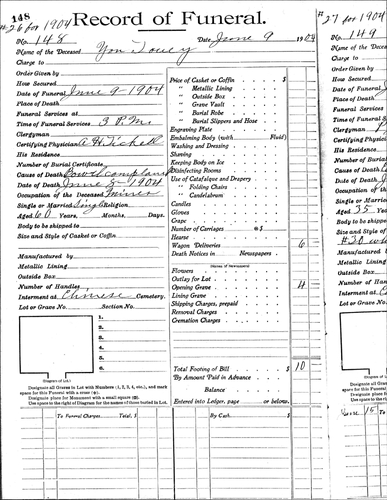 148
#26 for 1904
Record of Funeral.
No. 148 Date June 9 1904
Name of the Deceased Yon
Charge to
Order Given by
How Secured
Date of Funeral June 9 1904
Place of Death
Funeral Services at
Time of Funeral Services 3 P.M.
Clergyman
Certifying Physician A H Tickell
His Residence
Number of Burial Certificate
Cause of Death Bowel complaint
Date of Death June 8 1904
Occupation of the Deceased Miner
Single or Married Single Religion
Aged 60 Years, Months, Days.
Body to be shipped to
Size and Style of Casket or Coffin
Metallic Lining
Outside Box
Number of Handles
Interment at Chinese Cemetery.
Lot or Grave No. Section No.
1.
2.
3.
4.
5.
6.
(Diagram of Lot.)
Designate all Graves in Lot with Numbers (1, 2, 3, 4, etc.), and mark
space for this Funeral with a cross (+).
Designate place for Monument with a small square (□).
Use space to the right of Diagram for the names of those buried in Lot.
Price of Casket or Coffin $
" Metallic Lining
" Outside Box
" Grave Vault
" Burial Robe
" Burial Slippers and Hose
Engraving Plate
Embalming Body (with Fluid)
Washing and Dressing
Shaving
Keeping Body on Ice
Disinfecting Rooms
Use of Catafalque and Drapery
" Folding Chairs
" Candelabrum
Candles
Gloves
Crape
Number of Carriages @ $
Hearse
Wagon Deliveries 6
Death Notices in Newspapers
(Names of Newspapers)
Flowers
Outlay for Lot
Opening Grave 4
Lining Grave
Shipping Charges, prepaid
Removal Charges
Cremation Charges
Total Footing of Bill $ 10
By Amount Paid in Advance
Balance
Entered into Ledger, page or below.
To Funeral Charges Total, $ By Cash $
#27 for 1904
No. 149
Name of the
Charge to
Order Given
How Secured
Date of Funeral
Place of Death
Funeral Services
Time of Funeral
Clergyman
Certifying Physician
His Residence
Number of Burial
Cause of Death
Date of Death
Occupation of
Single or Married
Aged 35 Years
Body to be shipped
Size and Style
#30
Metallic Lining
Outside Box
Number of Handles
Interment at
Lot or Grave No.
Designate
space for this
Designate
Use space
June 15